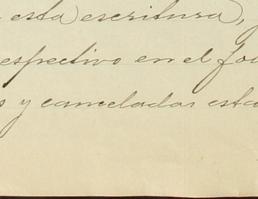 esta escritura,
espectivo en el fo
y canceladas esta